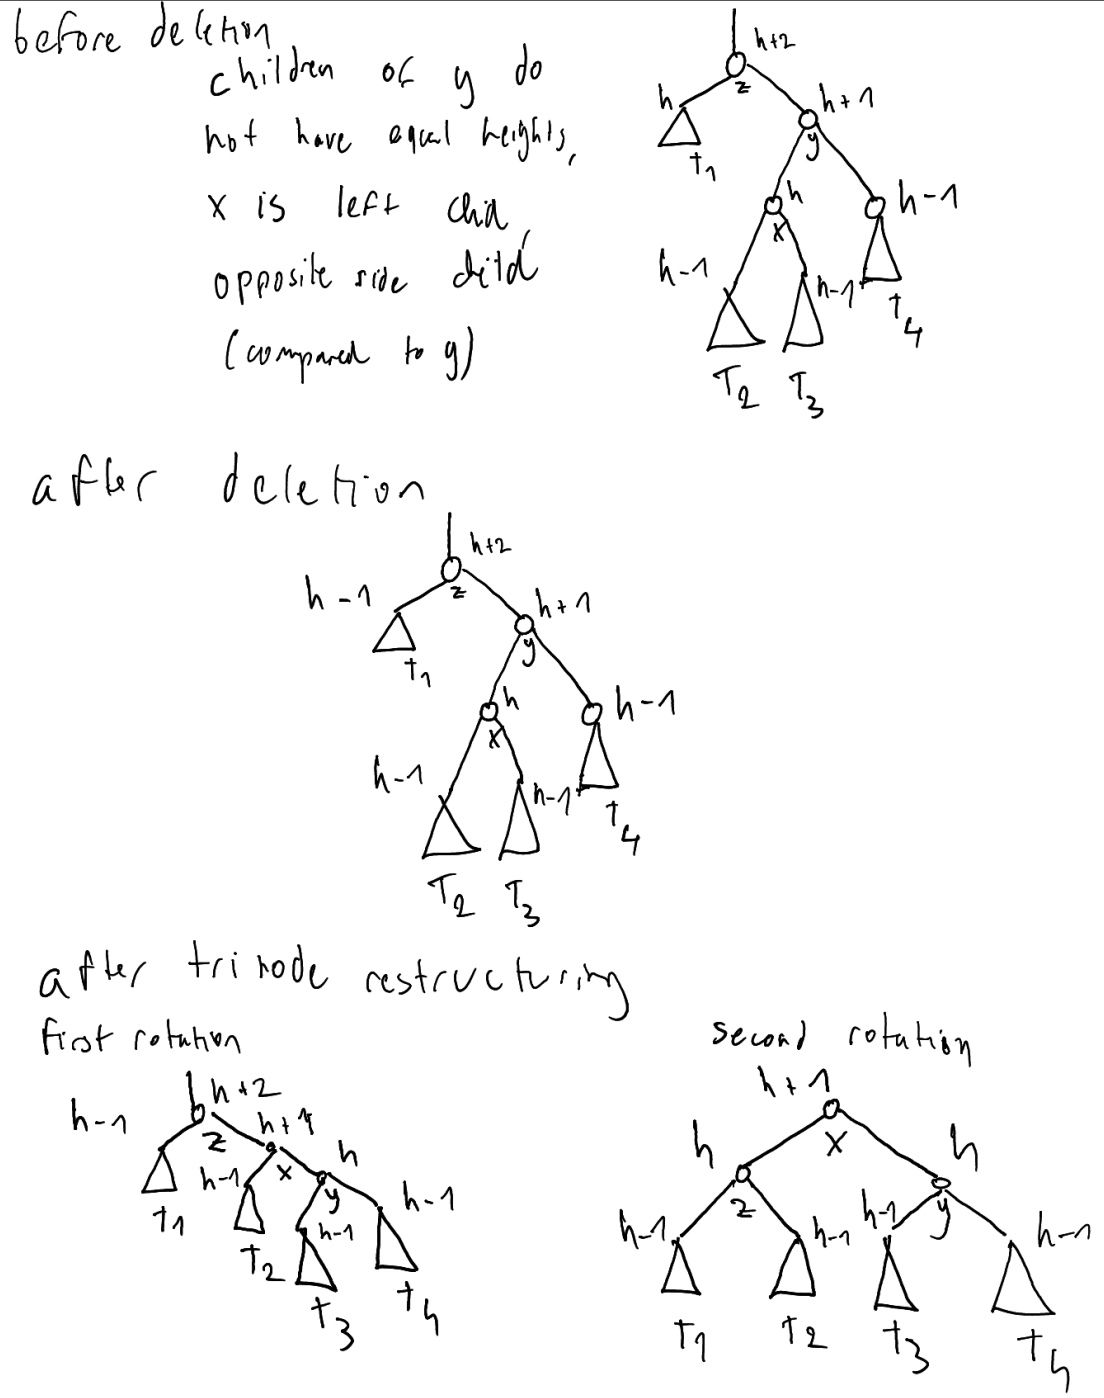 before deletion
children of y do
not have equal heights,
x is left child,
opposite side child
(compared to y)
h+2
z
h
h+1
T1
y
h
h-1
x
h-1
h-1
T4
T2 T3
after deletion
h+2
h-1
z
h+1
T1
y
h
h-1
x
h-1
h-1
T4
T2 T3
after trinode restructuring
first rotation
second rotation
h+2
h-1
z
h+1
h
h-1
x
y
h-1
T1
h-1
T2
T3
T4
h+1
x
h
h
z
y
h-1
h-1
h-1
h-1
T1
T2
T3
T4